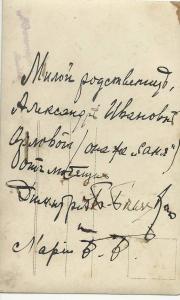 Милой родственице,
Александре Ивановне
Орловой / она же "Саня" /
отъ любящих
Димитрія
Марія Б. В.